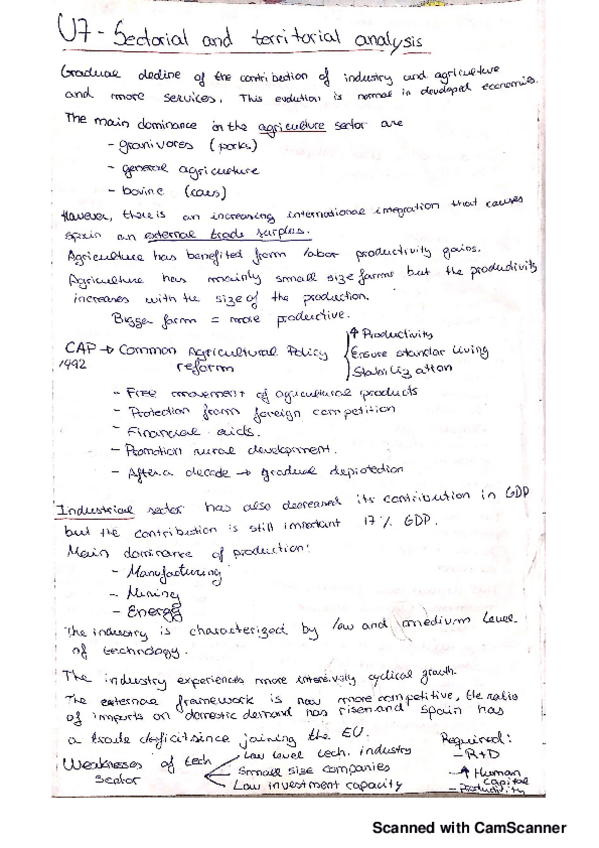 U7 - Sectorial and territorial analysis
Gradual decline of the contribution of industry and agriculture
and more services. This evolution is normal in developed economies.
The main dominance in the agriculture sector are
- granivores (porks)
- general agriculture
- bovine (cows)
However, there is an increasing international integration that causes
Spain an external trade surplus.
Agriculture has benefited from labor productivity gains.
Agriculture has mainly small size farms but the productivity
increases with the size of the production.
Bigger farm = more productive.
CAP → Common Agricultural Policy
1992 reform
↑ Productivity
Ensure standar living
Stabilization
- Free movement of agricultural products
- Protection from foreign competition
- Financial aids.
- Promotion rural development.
- After a decade → gradual deprotection
Industrial sector has also decreased its contribution in GDP
but the contribution is still important 17% GDP.
Main dominance of production:
- Manufacturing
- Mining
- Energy
The industry is characterized by low and medium level
of technology.
The industry experiences more intensively cyclical growth.
The external framework is now more competitive, the ratio
of imports on domestic demand has risen and Spain has
a trade deficit since joining the EU.
Weaknesses of tech
sector
Low level tech. industry
Small size companies
Low investment capacity
Required:
- R+D
- ↑ Human
capital
- productivity
Scanned with CamScanner